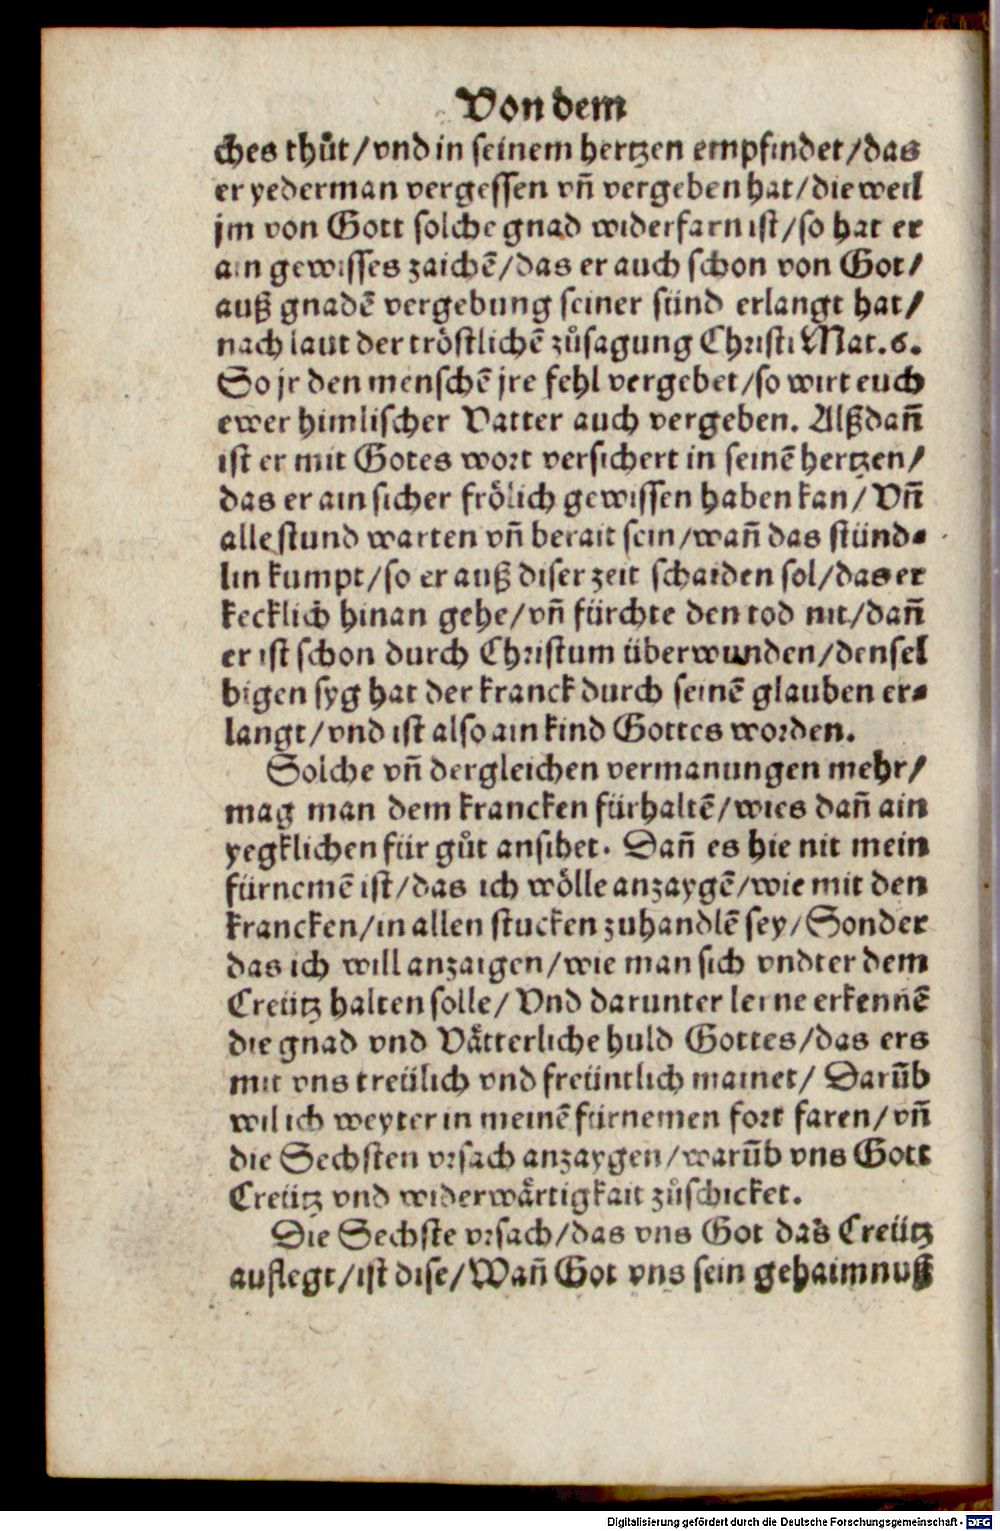 Von dem
ches thůt/vnd in seinem hertzen empfindet/das
er yederman vergessen vñ vergeben hat/die weil
jm von Gott solche gnad widerfarn ist/so hat er
ain gewisses zaichẽ/das er auch schon von Got/
auß gnadẽ vergebung seiner sünd erlangt hat/
nach laut der tröstlichẽ zůsagung Christi Mat.6.
So jr den menschẽ jre fehl vergebet/so wirt euch
ewer himlischer Vatter auch vergeben. Alßdañ
ist er mit Gotes wort versichert in seinẽ hertzen/
das er ain sicher frölich gewissen haben kan/ Vñ
alle stund warten vñ berait sein/wañ das stünd⸗
lin kumpt/so er auß diser zeit schaiden sol/das er
kecklich hinan gehe/vñ fürchte den tod nit/dañ
er ist schon durch Christum überwunden/densel
bigen syg hat der kranck durch seinẽ glauben er⸗
langt/vnd ist also ain kind Gottes worden.
Solche vñ dergleichen vermanungen mehr/
mag man dem krancken fürhaltẽ/wies dañ ain
yegklichen für gůt ansihet. Dañ es hie nit mein
fürnemẽ ist/das ich wölle anzaygẽ/wie mit den
krancken/in allen stucken zuhandlẽ sey/Sonder
das ich will anzaigen/wie man sich vndter dem
Creütz halten solle/ Vnd darunter lerne erkennẽ
die gnad vnd Vätterliche huld Gottes/das ers
mit vns treülich vnd freüntlich mainet/ Darüb
wil ich weyter in meinẽ fürnemen fort faren/vñ
die Sechsten vrsach anzaygen/warüb vns Gott
Creütz vnd widerwärtigkait zůschicket.
Die Sechste vrsach/das vns Got das Creütz
auflegt/ist dise/Wañ Got vns sein gehaimnuß
Digitalisierung gefördert durch die Deutsche Forschungsgemeinschaft - DFG